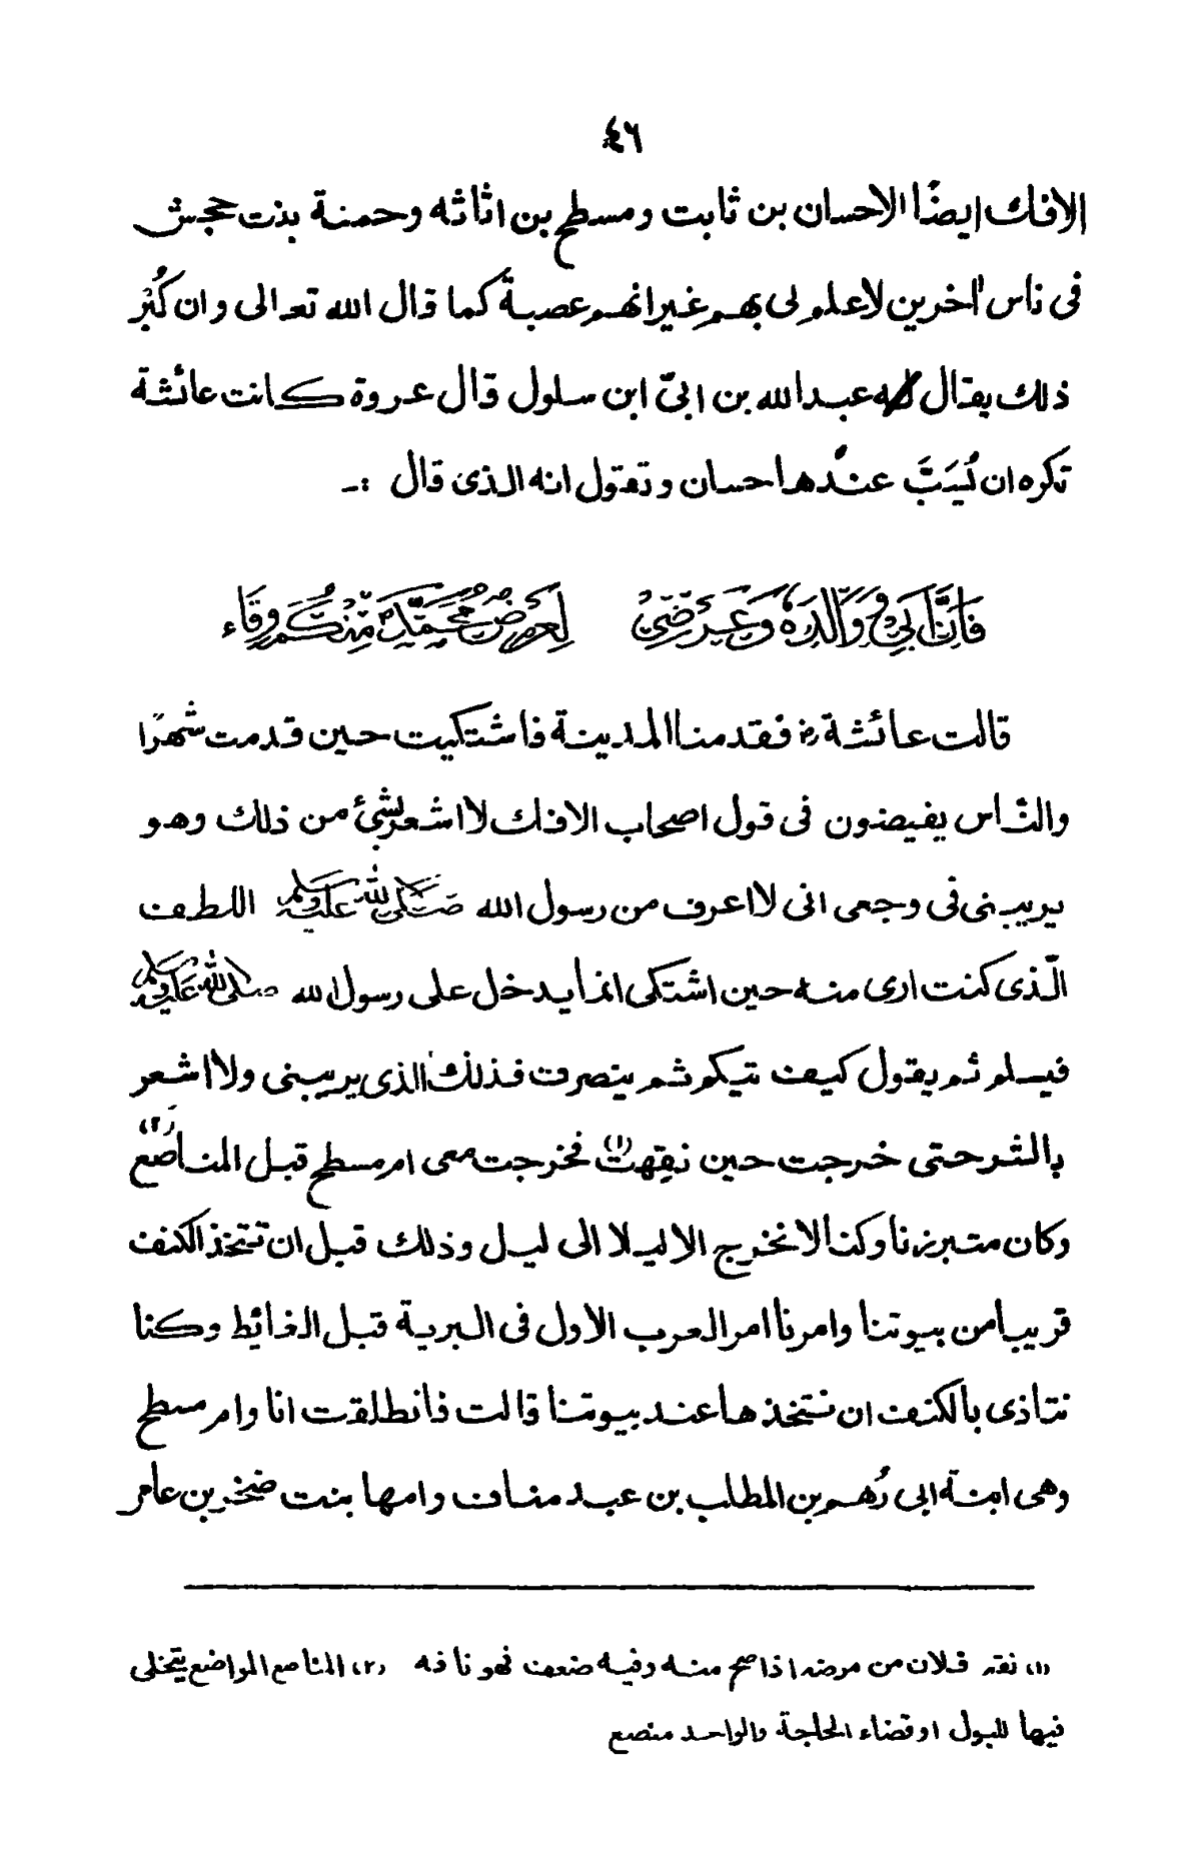 ٤٦
الافك ايضًا الاحسان بن ثابت ومسطح بن اثاثه وحمنة بنت حجش
فى ناس اٰخرين لاعلم لى بهم غير انهم عصبة كما قال الله تعالى وان كُبْر
ذلك يقال له عبد الله بن ابىّ ابن سلول قال عروة كانت عائشة
تكره ان يُسَبَّ عندها حسان وتقول انه الذى قال :ـ
فَاِنَّ اَبِىْ وَوَالِدَهٗ وَعِرْضِىْ لِعِرْضِ مُحَمَّدٍ مِّنْكُمْ وِقَاء
قالت عائشة رض فقدمنا المدينة فاشتكيت حين قدمت شهرًا
والنّاس يفيضون فى قول اصحاب الافك لا اشعر بشئ من ذلك وهو
يريبنى فى وجعى انى لا اعرف من رسول الله صَلَّى اللهُ عَلَيْهِ وَسَلَّم اللطف
الّذى كنت ارى منه حين اشتكى انما يدخل على رسول الله صلى الله عليه وسلم
فيسلم ثم يقول كيف تيكم ثم ينصرف فذلك الذى يريبنى ولا اشعر
بالشر حتى خرجت حين نقِهت(١) فخرجت معى ام مسطح قبل المناصع(٢)
وكان متبرزنا وكنا لا نخرج الا ليلا الى ليل وذلك قبل ان تتخذ الكنف
قريبا من بيوتنا وامرنا امر العرب الاول فى البرية قبل الغائط وكنا
نتاذى بالكنف ان نتخذها عند بيوتنا قالت فانطلقت انا وام مسطح
وهى ابنة ابى رُهم بن المطلب بن عبد مناف وامها بنت صخر بن عامر
(١) نقه فلان من مرضه اذا صح منه وفيه ضعف فهو ناقه (٢) المناصع المواضع يتخلى
فيها للبول او قضاء الحاجة والواحد منصع